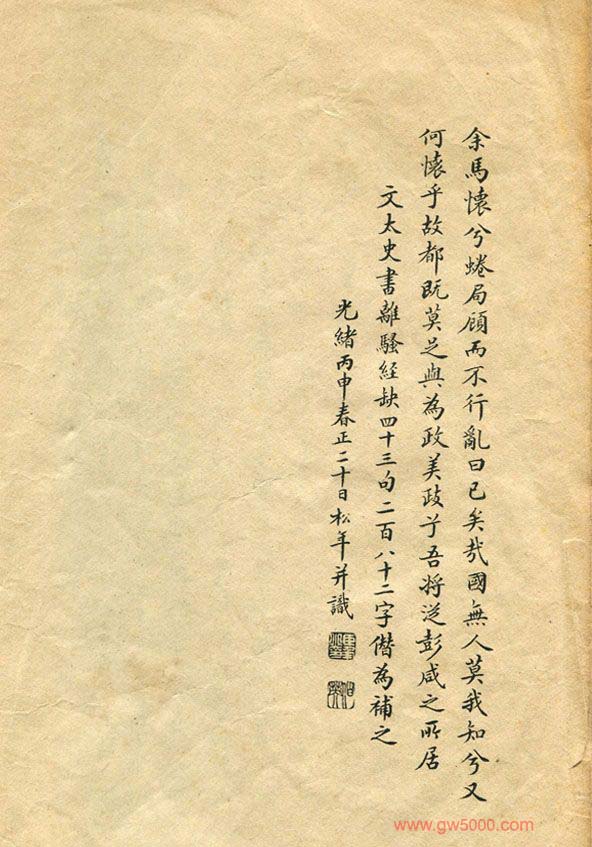 余馬懷兮蜷局顧而不行亂曰已矣哉國無人莫我知兮又
何懷乎故都既莫足與為政美政兮吾將從彭咸之所居
文太史書離騷經缺四十三句二百八十二字僭為補之
光緒丙申春正二十日松年并識
www.gw5000.com